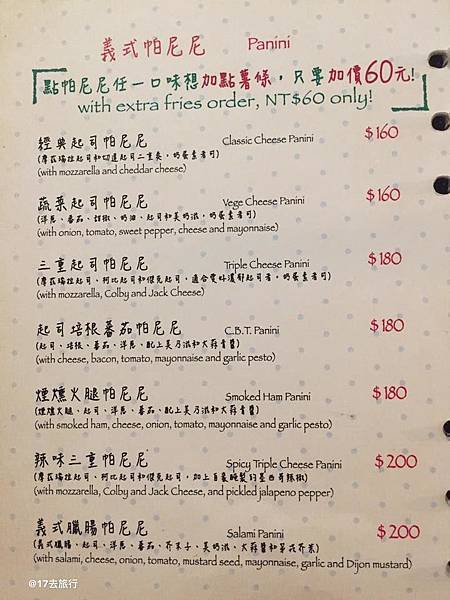 義式帕尼尼 Panini
點帕尼尼任一口味想加點薯條,只要加價60元!
with extra fries order, NT$60 only!
經典起司帕尼尼 Classic Cheese Panini $160
(摩荻瑞拉起司和切達起司二重奏,奶蛋素者可)
(with mozzarella and cheddar cheese)
蔬菜起司帕尼尼 Vege Cheese Panini $160
(洋蔥、番茄、甜椒、奶油、起司和美奶滋,奶蛋素者可)
(with onion, tomato, sweet pepper, cheese and mayonnaise)
三重起司帕尼尼 Triple Cheese Panini $180
(摩荻瑞拉起司、柯比起司和傑克起司,適合愛好濃郁起司者,奶蛋素者可)
(with mozzarella, Colby and Jack Cheese)
起司培根番茄帕尼尼 C.B.T. Panini $180
(起司、培根、番茄、洋蔥、配上美乃滋和大蒜青醬)
(with cheese, bacon, tomato, mayonnaise and garlic pesto)
煙燻火腿帕尼尼 Smoked Ham Panini $180
(煙燻火腿、起司、洋蔥、番茄、配上美乃滋和大蒜青醬)
(with smoked ham, cheese, onion, tomato, mayonnaise and garlic pesto)
辣味三重帕尼尼 Spicy Triple Cheese Panini $200
(摩荻瑞拉起司、柯比起司和傑克起司,加上自家醃製的墨西哥辣椒)
(with mozzarella, Colby and Jack Cheese, and pickled jalapeno pepper)
義式臘腸帕尼尼 Salami Panini $200
(義式臘腸、起司、洋蔥、番茄、芥末子、美奶滋、大蒜醬和第戎芥末)
(with salami, cheese, onion, tomato, mustard seed, mayonnaise, garlic and Dijon mustard)
@17去旅行